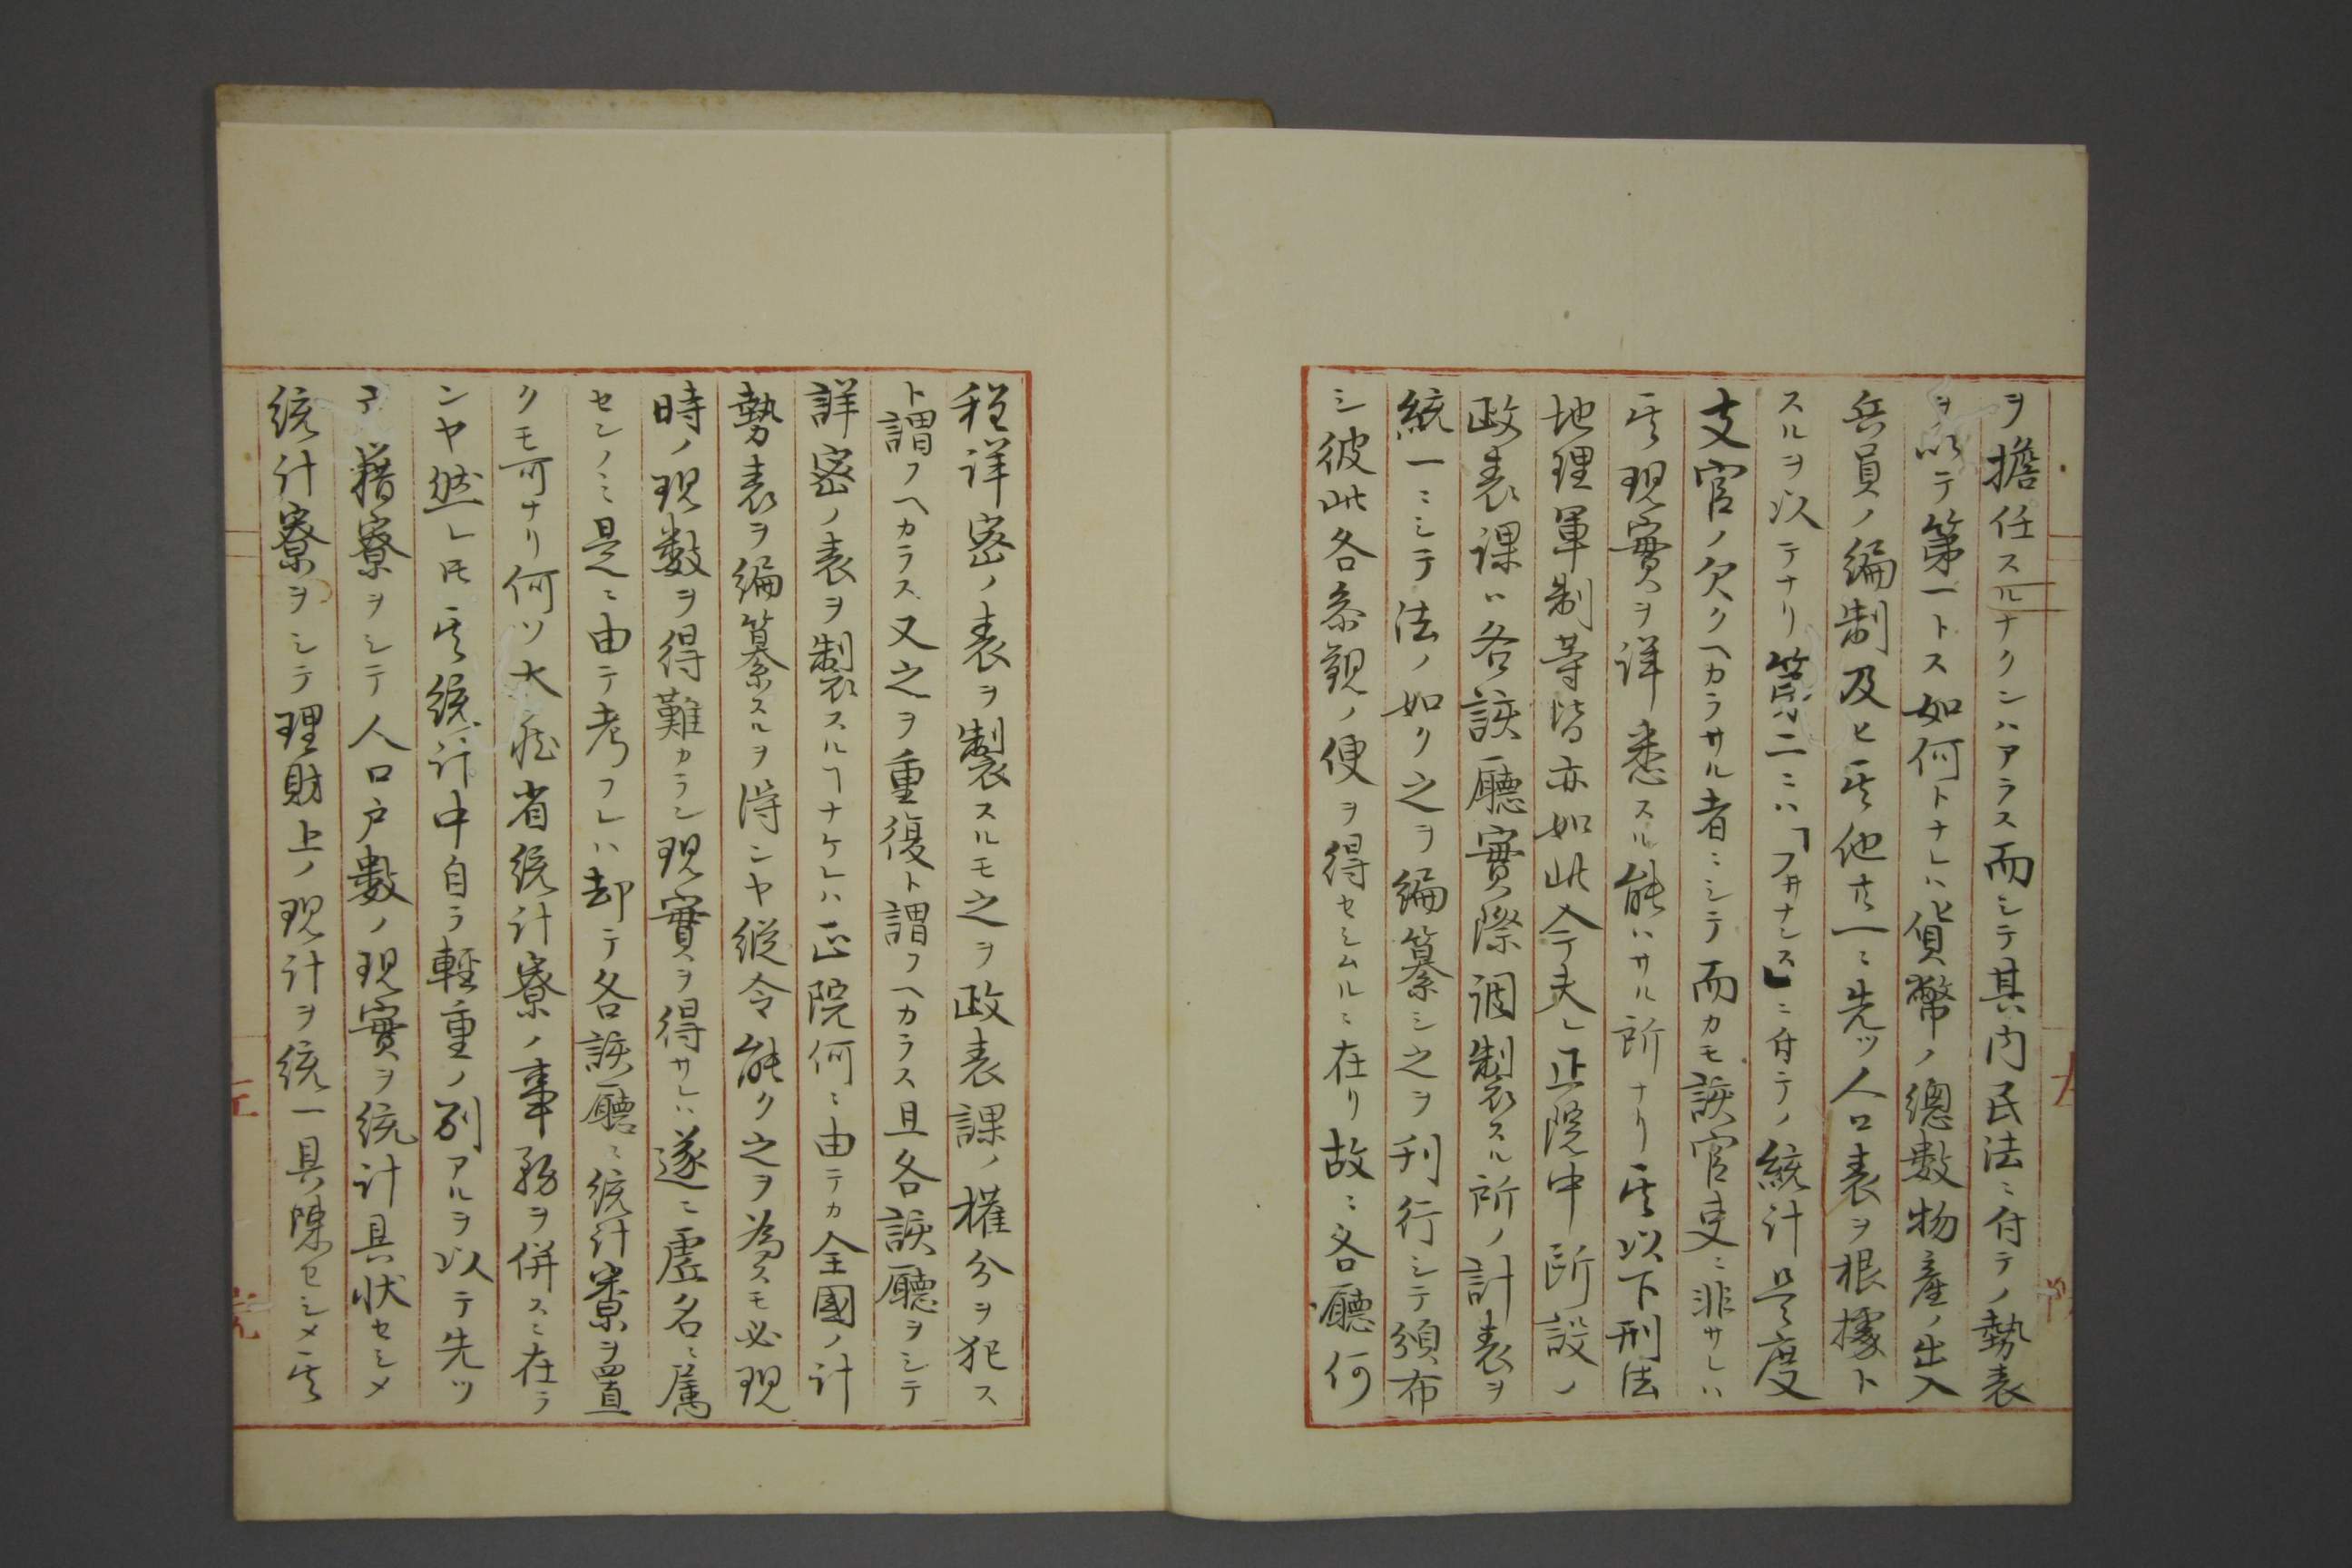 ヲ擔任スルナクンハアラス而シテ其内民法ニ付テノ勢表
ヲ以テ第一トス如何トナレハ貨幣ノ總數物產ノ出入
兵員ノ編制及ヒ其他廿一ニ先ツ人口表ヲ根據ト
スルヲ以テナリ第二ニハ「フ井ナンス」ニ付テノ統計是度
支官ノ欠クヘカラサル者ニシテ而カモ該官吏ニ非サレハ
其現實ヲ詳悉スル能ハサル所ナリ其以下刑法
地理軍制等皆亦如此今夫レ正院中所設ノ
政表課ハ各該廳實際調製スル所ノ計表ヲ
統一ニシテ法ノ如ク之ヲ編纂シ之ヲ刊行シテ頒布
シ彼此各叅觀ノ便ヲ得セシムルニ在リ故ニ各廳何
程詳密ノ表ヲ製スルモ之ヲ政表課ノ權分ヲ犯ス
ト謂フヘカラス又之ヲ重復ト謂フヘカラス且各該廳ヲシテ
詳密ノ表ヲ製スルヿナケレハ正院何ニ由テカ全國ノ計
勢表ヲ編纂スルヲ得ンヤ縱令能ク之ヲ為スモ必現
時ノ現数ヲ得難カラン現實ヲ得サレハ遂ニ虛名ニ属
センノミ是ニ由テ考フレハ却テ各該廳ニ統計寮ヲ置
クモ可ナリ何ソ大藏省統計寮ノ事務ヲ併スニ在ラ
ンヤ然レ𪜈其統計中自ラ輕重ノ別アルヲ以テ先ツ
戸籍寮ヲシテ人口戸數ノ現實ヲ統計具狀セシメ
統計寮ヲシテ理財上ノ現計ヲ統一具陳セシメ其